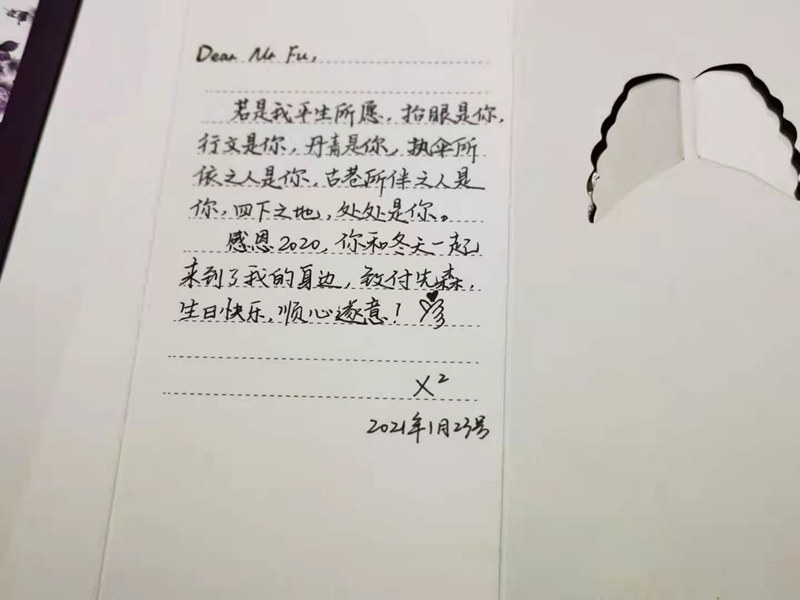 Dear Mr Fu,
若是我平生所愿，抬眼是你，
行文是你，丹青是你，执伞所
依之人是你，古巷所伴之人是
你，四下之地，处处是你。
感恩2020，你和冬天一起
来到了我的身边，致付先森，
生日快乐，顺心遂意！
X²
2021年1月23号